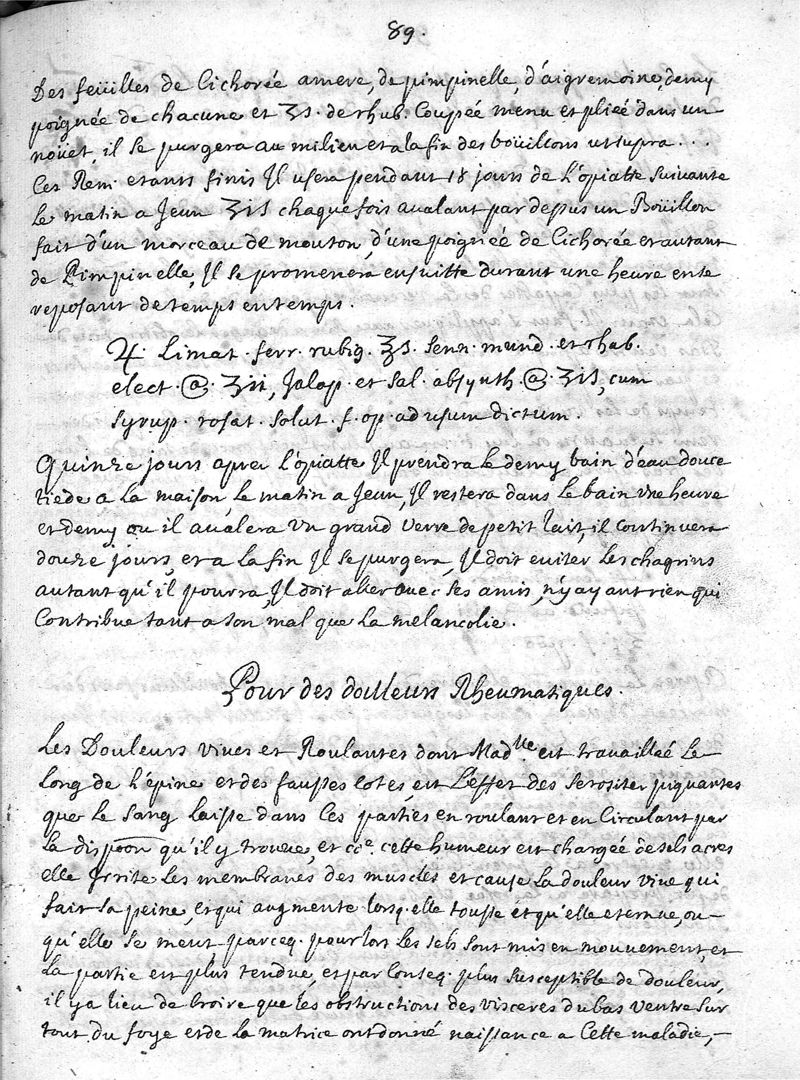 89.
Des feüilles de Cichorée amere, de pimpinelle, d'aigremoine, demy
poignée de chacune et ʒs. de rhub. Coupée menu et pliée dans un
noüet, il se purgera au milieu et a la fin des boüillons ut supra . . .
Ces Rem. etants finis Il usera pendant 18 jours de L'opiatte suivante
Le matin a Jeun ʒis chaque fois avalant par dessus un Boüillon
fait d'un morceau de mouton, d'une poignée de Cichorée et autant
de Pimpinelle, Il se promenera ensuitte durant une heure en se
reposant de temps en temps.
♃. Limat. ferr. rubig. ʒs. senn. mund. et rhab.
elect. @. ʒii, Jalap. et sal. absynth. @. ʒis, cum
syrup. rosat. solut. f. op. ad usum dictum.
Quinze jours apres L'opiatte Il prendra le demy bain d'eau douce
tiede a la maison, Le matin a Jeun, Il restera dans Le bain une heure
et demy ou il avalera un grand verre de petit lait, il continuera
douze jours, et a la fin Il se purgera, Il doit eviter les chagrins
autant qu'il pourra, Il doit aller avec ses amis, n'y ayant rien qui
Contribue tant a son mal que La melancolie.
Pour des douleurs Rheumatiques.
Les Douleurs vives et Roulantes dont Mad^lle est travaillée Le
Long de L'épine et des fausses cotes, est L'effet des serositez piquantes
que Le sang laisse dans Ces parties en roulant et en Circulant par
La dispoon qu'il y trouve, et cõe. cette humeur est chargée de sels acres
elle irrite Les membranes des muscles et cause La douleur vive qui
fait sa peine, et qui augmente lorsq. elle tousse et qu'elle eternue, ou
qu'elle se meut parceq. pour lors Les sels sont mis en mouvement, et
La partie est plus tendue, et par Conseq. plus susceptible de douleur,
il y a lieu de Croire que les obstructions des visceres du bas ventre sur
tout du foye et de la matrice ont donné naissance a Cette maladie,